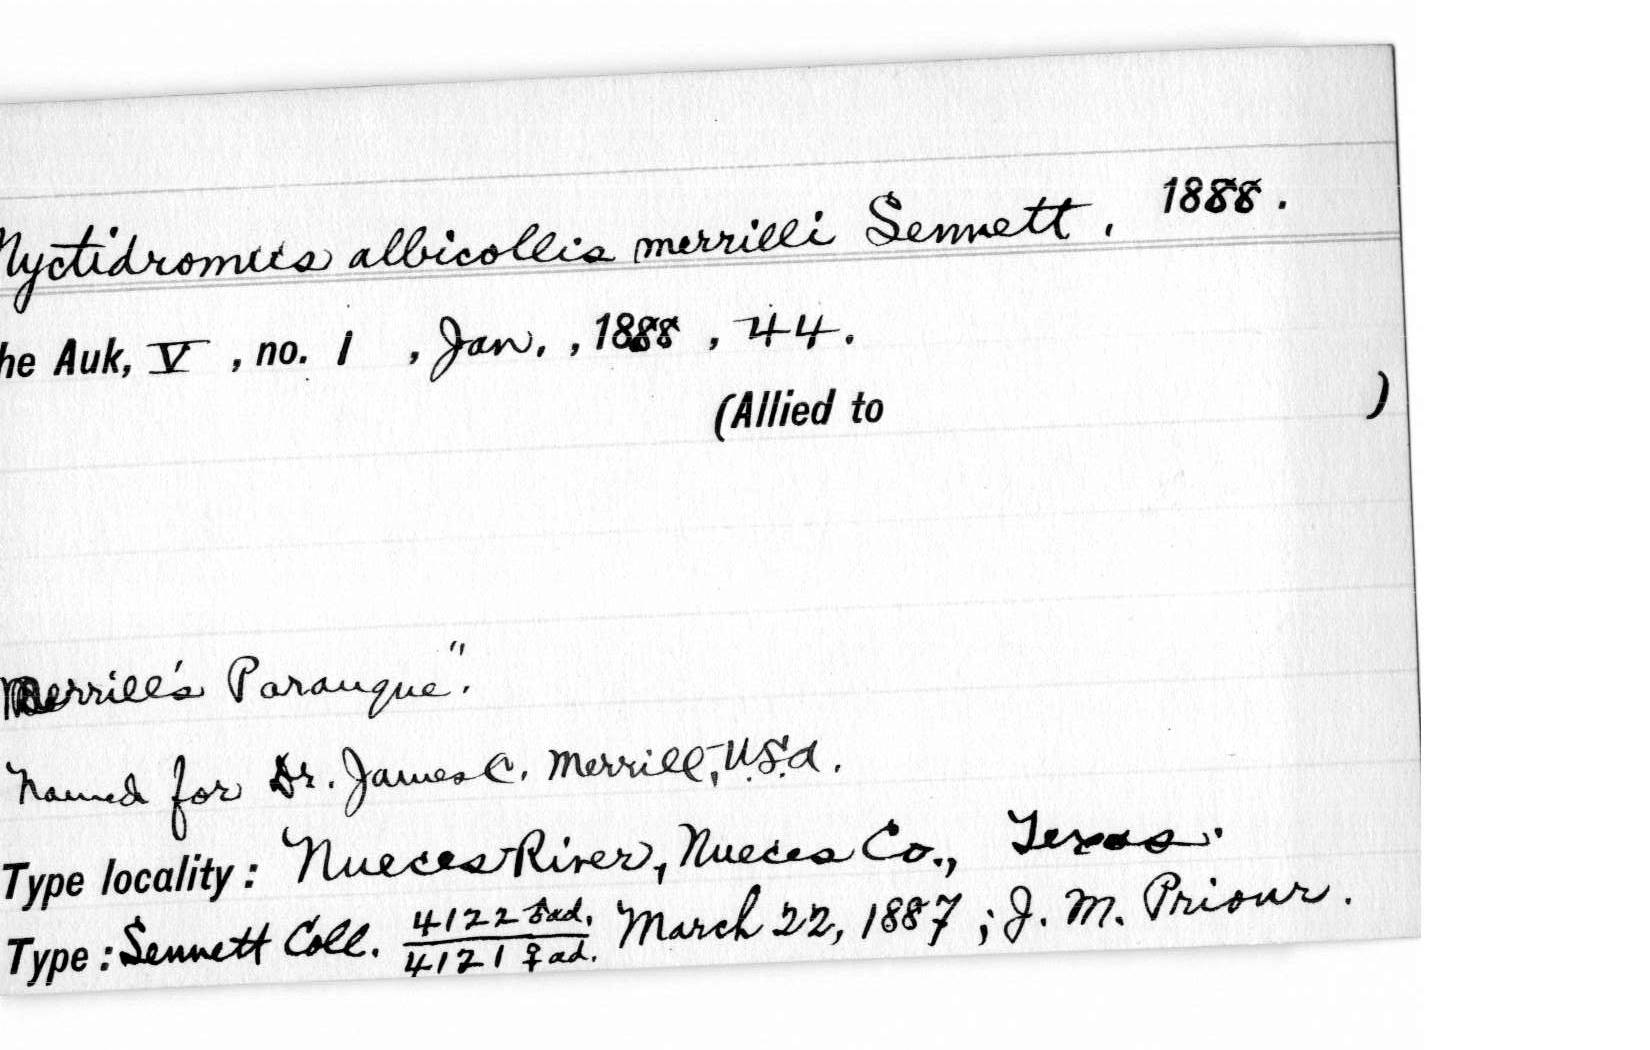 Nyctidromus albicollis merrilli Sennett. 1888.
he Auk, V, no. 1, Jan., 1888, 44.
(Allied to )
Merrill's Parauque".
Named for Dr. James C. Merrill, U.S.A.
Type locality: Nueces River, Nueces Co., Texas.
Type: Sennett Coll. 4122 ♂ ad. March 22, 1887; J. M. Priour.
4121 ♀ ad.